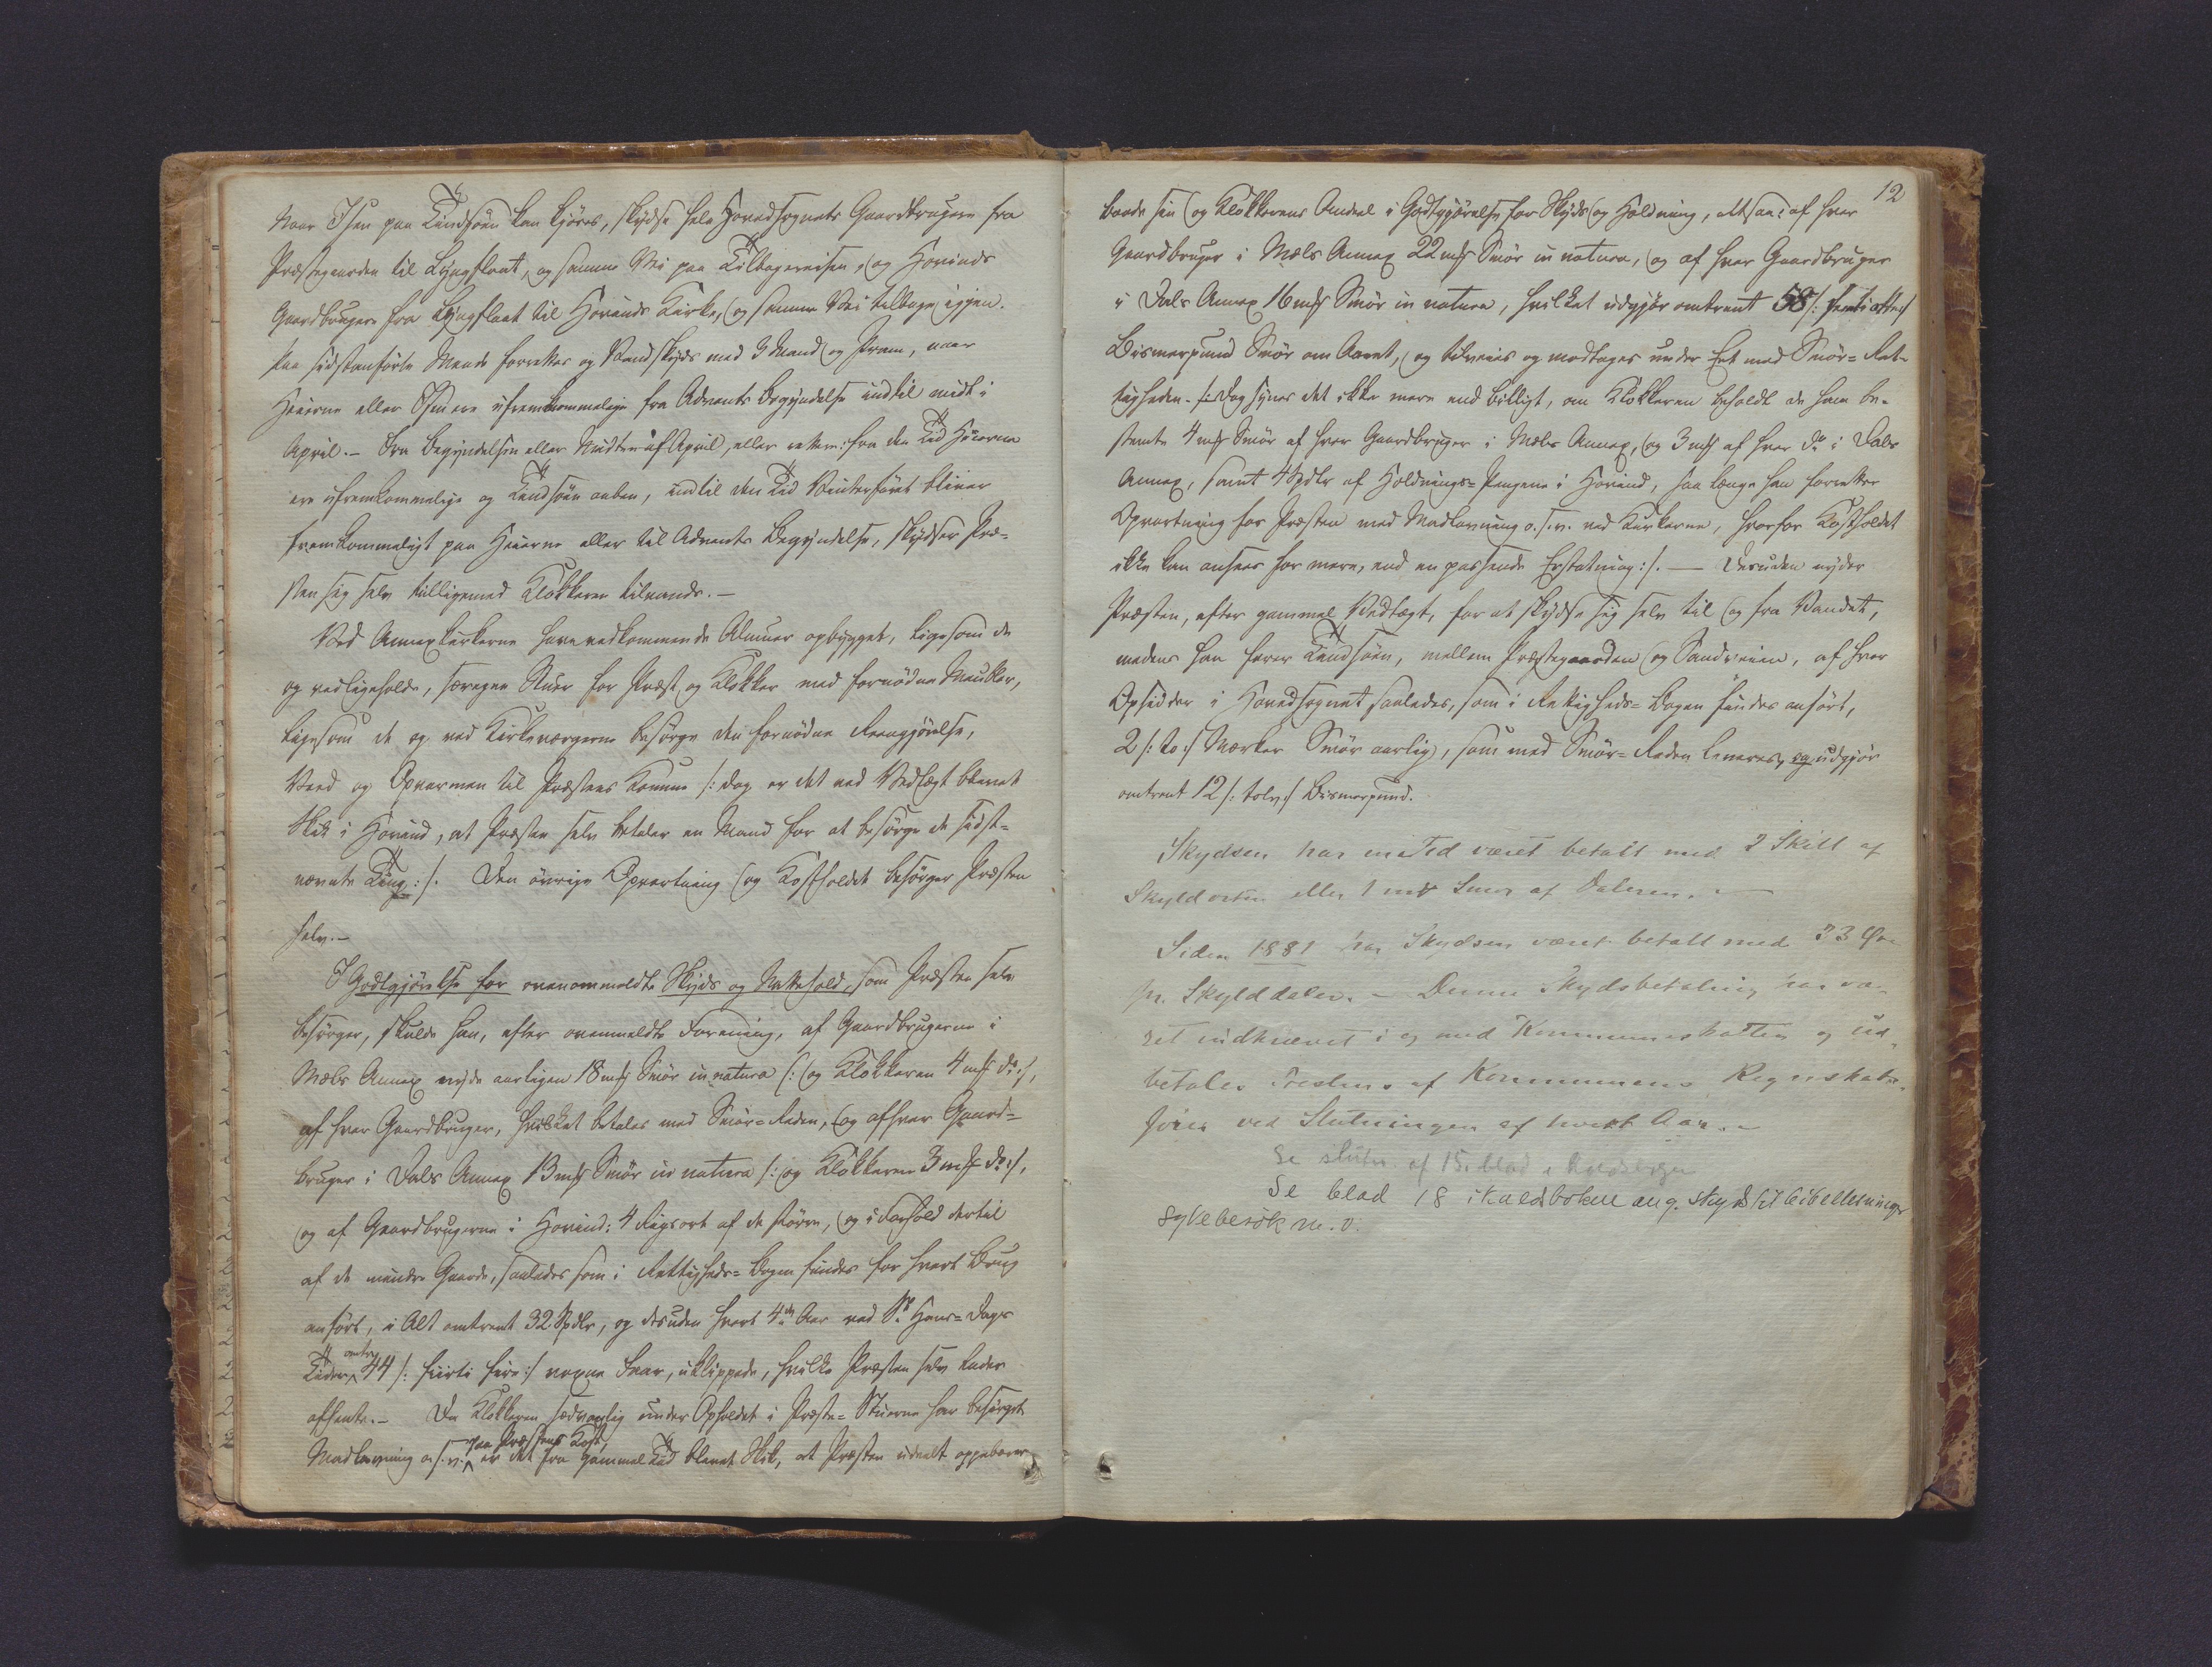 Naar Isen paa Tindsøen kan kjøres, skydse hele Hovedsognets Gaardbrugere fra
Præstegaarden til Lyngflaat, og samme Vei paa Tilbagereisen, og Hovinds
Gaardbrugere fra Lyngflaat til Hovinds Kirke, og samme Vei tilbage igjen.
Paa sidstanførte Maade forrettes og Vandskyds med 3 Mand og Pram, naar
Heierne eller Isen ere ufremkommelige fra Advents Begyndelse indtil midt i
April. – Fra Begyndelsen eller Midten af April, eller rettere: fra den Tid Heierne
ere ufremkommelige og Tindsøen aaben, indtil den Tid Vinterføret bliver
fremkommeligt paa Heierne eller til Advents Begyndelse, skydser Præ-
sten sig selv tilligemed Klokkeren tilvands. –
Ved Annexkirkerne have vedkommende Almuer opbygget, ligesom de
og vedligeholde, særegne Stuer for Præst og Klokker med fornødne Meubler,
ligesom de og ved Kirkeværgerne besørge den fornødne Reengjørelse,
Veed og Opvarmen til Præstens Komme /: dog er det ved Vedtægt blevet
Skik i Hovind, at Præsten selv betaler en Mand for at besørge de sidst-
nævnte Ting :/. Den øvrige Opvartning og Kostholdet besørger Præsten
selv. –
I Godtgjørelse for ovenommeldte Skyds og Nattehold, som Præsten selv
besørger, skulde han, efter ovenmeldte Forening, af Gaardbrugerne i
Mæls Annex nyde aarligen 18 mk Smør in natura /: og Klokkeren 4 mk do :/,
af hver Gaardbruger, hvilket betales med Smør-Reden, og af hver Gaard-
bruger i Dals Annex 13 mk Smør in natura /: og Klokkeren 3 mk do :/,
og af Gaardbrugerne i Hovind: 4 Rigsort af de større, og i Forhold dertil
af de mindre Gaarde, saaledes som i Rettigheds-Bogen findes for hvert Brug
anført, i Alt omtrent 32 Spdlr, og desuden hvert 4de Aar ved St. Hans-Dags
Tider, omtr. 44 /: firti fire :/ voxne Faar, uklippede, hvilke Præsten selv lader
afhente. – Da Klokkeren sædvanlig under Opholdet i Præste-Stuerne har besørget
Madlavning o.s.v. paa Præstens Kost, er det fra gammel Tid blevet Skik, at Præsten udeelt oppebærer
12
baade sin og Klokkerens Andeel i Godtgjørelse for Skyds og Holdning, altsaa: af hver
Gaardbruger i Mæls Annex 22 mk Smør in natura, og af hver Gaardbruger
i Dals Annex 16 mk Smør in natura, hvilket udgjør omtrent 58 /: femti otte :/
Bismerpund Smør om Aaret, og tilveies og modtages under Eet med Smør-Ret-
tigheden. /: Dog synes det ikke mere end billigt, om Klokkeren beholdt de ham be-
stemte 4 mk Smør af hver Gaardbruger i Mæls Annex, og 3 mk af hver do i Dals
Annex, samt 4 Spdlr af Holdnings-Pengene i Hovind, saa længe han forretter
Opvartning for Præsten med Madlavning o.s.v. ved Kirkerne, hvorfor Kostholdet
ikke kan ansees for mere, end en passende Erstatning :/. — Desuden nyder
Præsten, efter gammel Vedtægt, for at skydse sig selv til og fra Vandet,
medens han farer Tindsøen, mellem Præstegaarden og Sandveien, af hver
Opsidder i Hovedsognet saaledes, som i Rettigheds-Bogen findes anført,
2 /: to :/ Marker Smør aarlig, som med Smør-Reden leveres, og udgjør
omtrent 12 /: tolv :/ Bismerpund.
Skydsen har en Tid været betalt med 2 Skill af
Skyldorten eller 1 mk Smør af Daleren. —
Siden 1881 har Skydsen været betalt med 33 Øre
pr. Skylddaler. – Denne Skydsbetaling har væ-
ret indkrævet i og med Kommuneskatten og ud-
betales Presten af Kommunens Regnskabs-
fører ved Slutningen af hvert Aar. –
Se slutn af 15. blad i kaldsbogen
Se blad 18 i kaldsboken ang. skyds til bibellesninger
sykebesøk m.v.